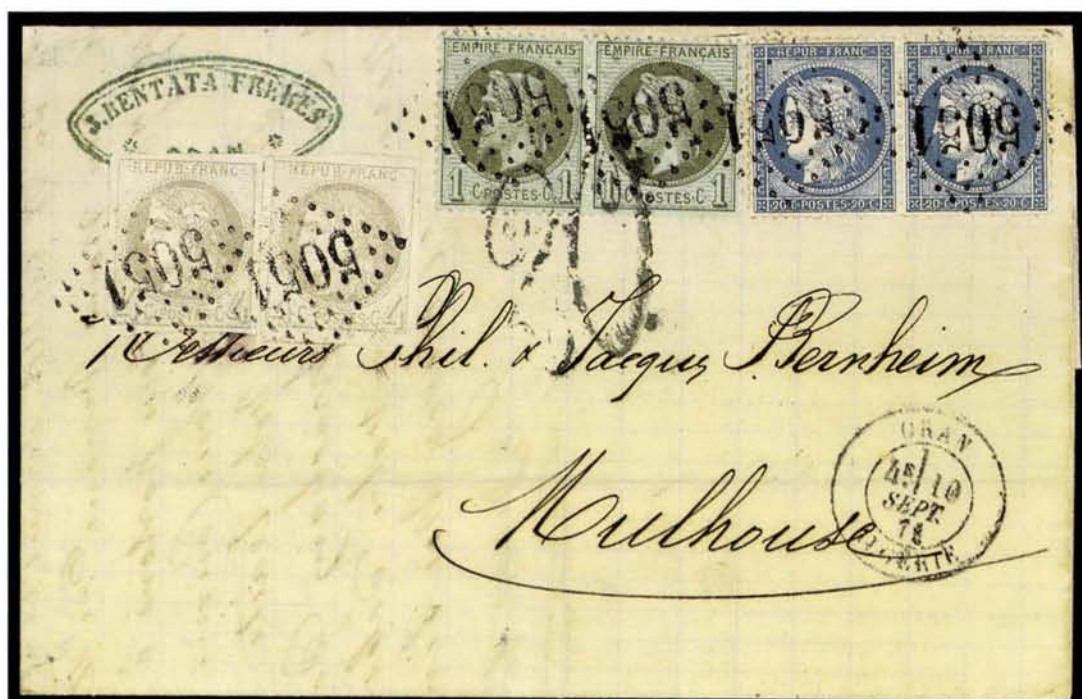 J. BENTATA FRERES
ORAN
EMPIRE FRANÇAIS
1 C. POSTES C. 1
EMPIRE FRANÇAIS
1 C. POSTES C. 1
REPUB. FRANC.
20 C. POSTES 20 C.
REPUB. FRANC.
20 C. POSTES 20 C.
5051
5051
5051
5051
REPUB. FRANC.
4
REPUB. FRANC.
4
5051
5051
Messieurs Phil. & Jacques Bernheim
Mulhouse
ORAN
4E/ 10
SEPT.
71
ALGERIE